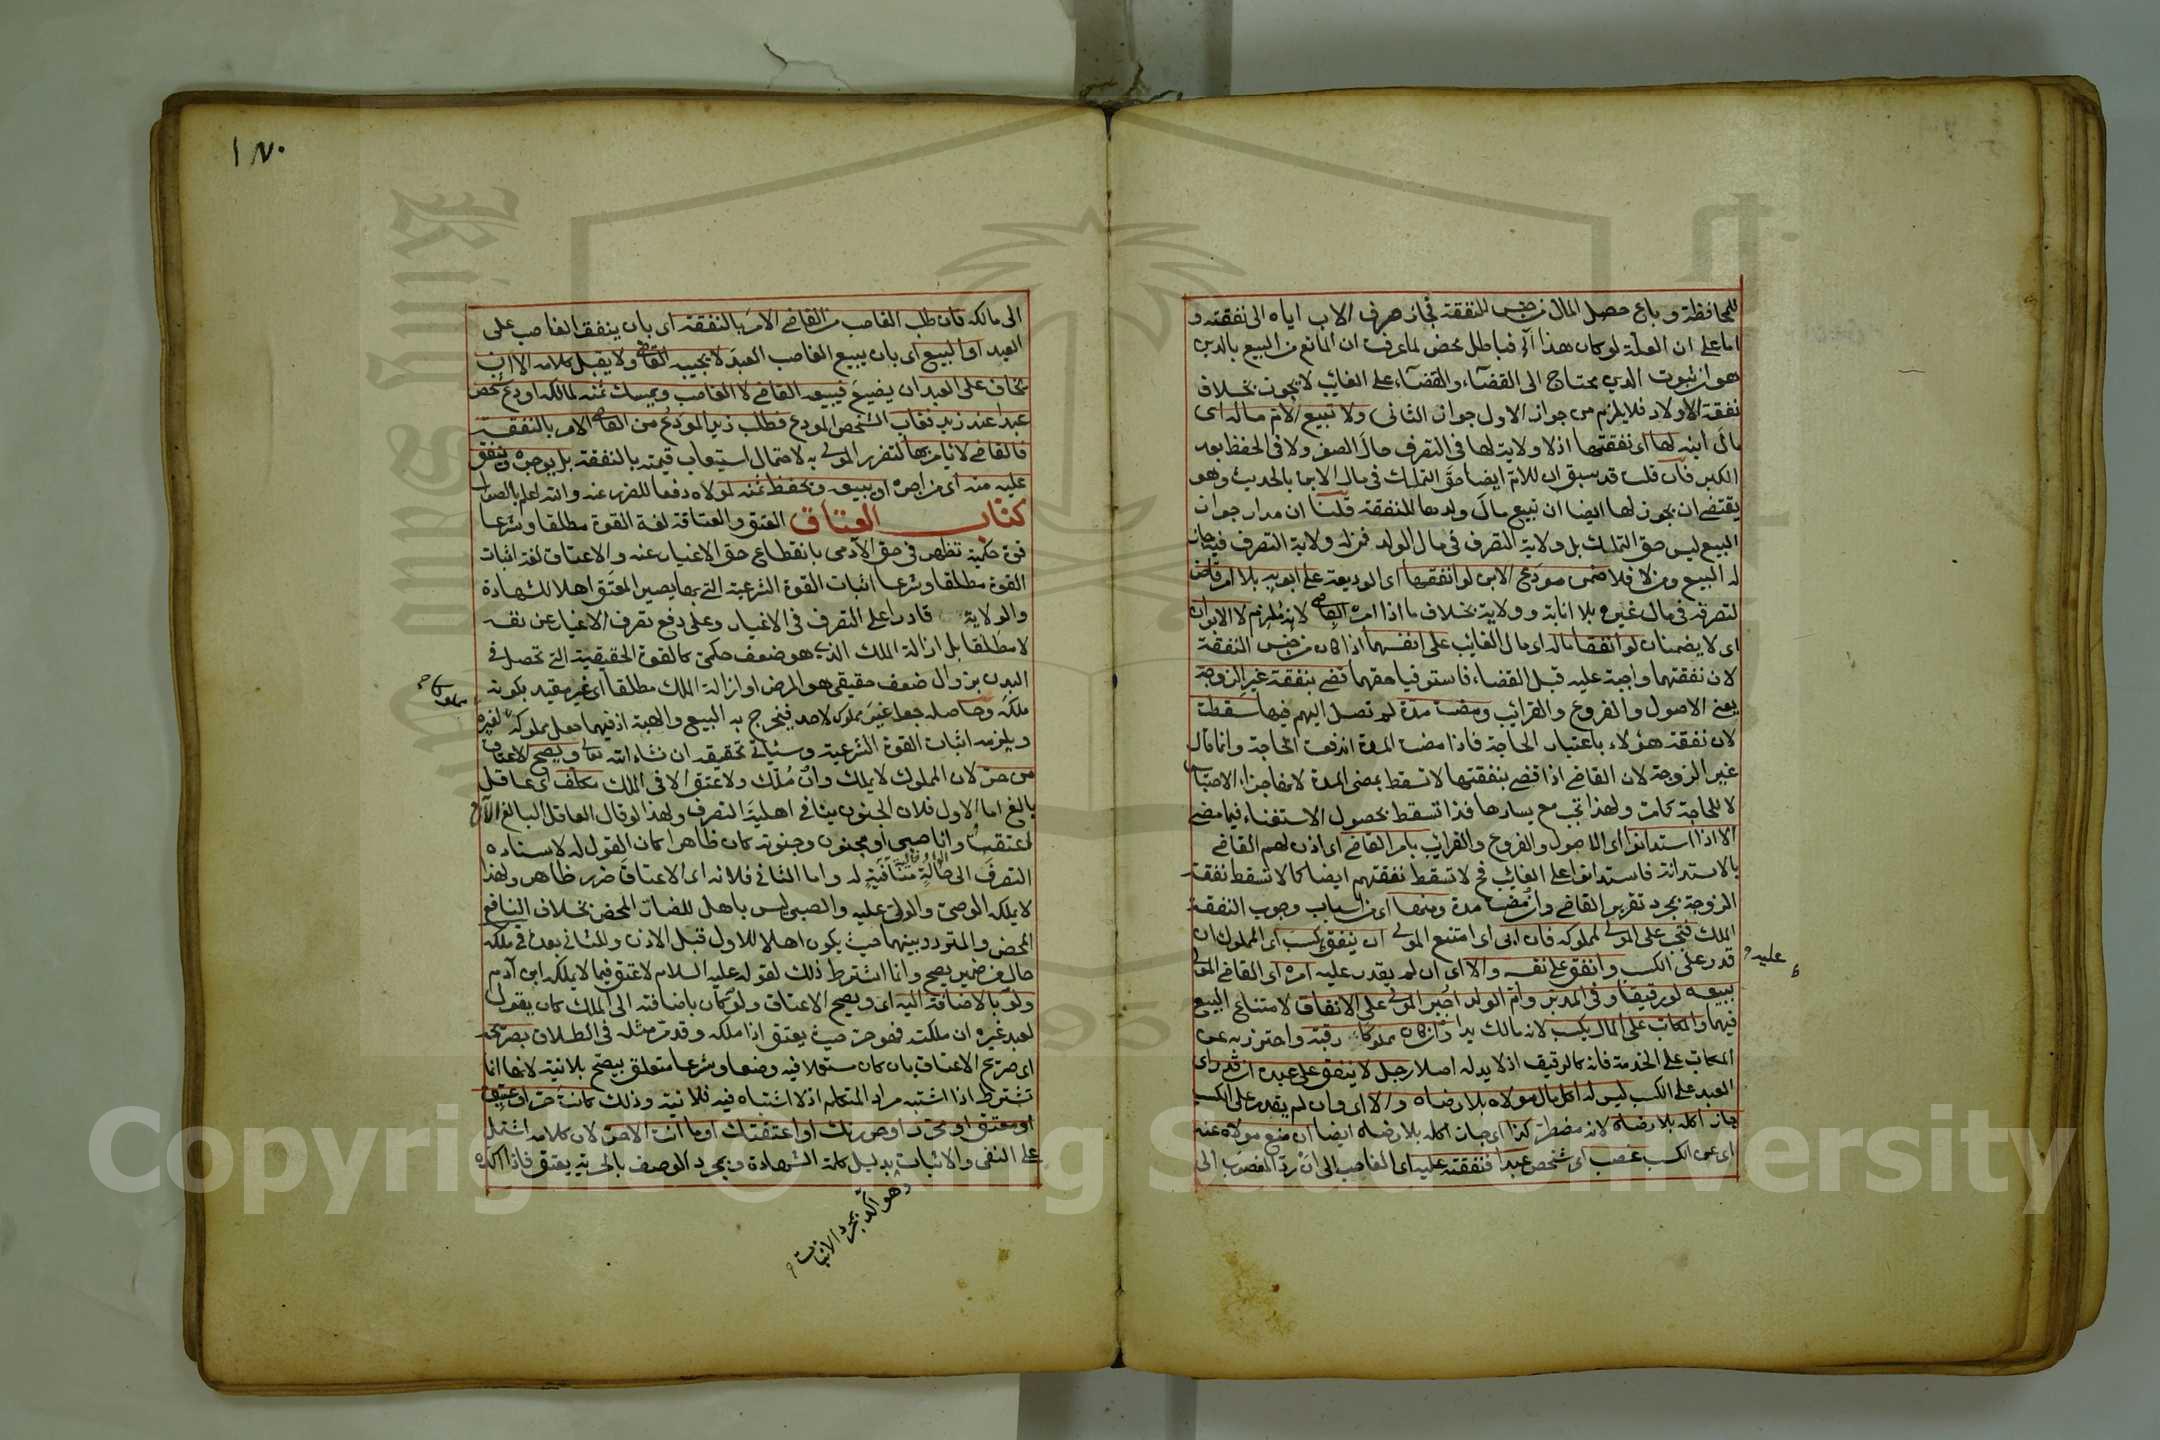 للمحافظة وباع حصل المال من جنس النفقة فجاز صرف الاب اياه الى نفقته و
اما على ان العلة لو كان هذا آلى فباطل محض لما عرف ان المانع من البيع بالدين
هو ان ثبوت الدين يحتاج الى القضاء والقضاء على الغائب لا يجوز بخلاف
نفقة الاولاد فلا يلزم من جواز الاول جواز الثانى ولا تبيع الام ماله اى
مال ابنه لها اى نفقتها اذ لا ولاية لها فى التصرف حال الصغر ولا فى الحفظ بعد
الكبر فان قلت قد سبق ان للام ايضا حق التملك فى مال الابن بالحديث وهو
يقتضى ان يجوز لها ايضا ان تبيع مال ولدها للنفقة قلنا ان مدار جواز
البيع ليس حق التملك بل ولاية التصرف فى مال الولد فمن له ولاية التصرف فيه جاز
له البيع ومن لا فلا ضمن مودع الابن لو انفقها اى الوديعة على ابويه بلا امر قاض
لتصرفه فى مال غيره بلا انابة وولاية بخلاف ما اذا امره القاضى لانه ملزم لا الابوان
اى لا يضمنان لو انفقا ماله اى مال الغائب على انفسهما اذا كان من جنس النفقة
لان نفقتهما واجبة عليه قبل القضاء فاستوفيا حقهما قضى بنفقة غير الزوجة
يعنى الاصول والفروع والقرائب ومضت مدة لم تصل اليهم فيها سقطت
لان نفقة هؤلاء باعتبار الحاجة فاذا مضت المدة اندفعت الحاجة وانما قال
غير الزوجة لان القاضى اذا قضى بنفقتها لا تسقط بمضى المدة لانها جزاء الاحتباس
لا للحاجة كما مر ولهذا تجب مع يسارها فلا تسقط بحصول الاستغناء فيما مضى
الا اذا استدانوا اى الاصول والفروع والقرائب بامر القاضى اى اذن لهم القاضى
بالاستدانة فاستدانوا على الغائب فح لا تسقط نفقتهم ايضا كما لا تسقط نفقة
الزوجة بمجرد تقرير القاضى وان مضت مدة ومنها اى من اسباب وجوب النفقة
الملك فتجب على المولى لمملوكه فان ابى اى امتنع المولى ان ينفق كسب اى المملوك ان
عليه
قدر على الكسب وانفق على نفسه والا اى ان لم يقدر عليه امره اى القاضى المولى
ببيعه لو رقيقا وفى المدبر وام الولد اجبر المولى على الانفاق لامتناع البيع
فيهما والمكاتب على المال يكسب لانه مالك يدا وان كان مملوكا رقبة واحترز به عن
المكاتب على الخدمة فانه كالرقيق اذ لا يد له اصلا رجل لا ينفق على عبده ان قدر اى
العبد على الكسب ليس له اكل مال مولاه بلا رضاه والا اى وان لم يقدر على الكسب
جاز اكله بلا رضاه لانه مضطر كذا اى جاز اكله بلا رضاه ايضا ان منع مولاه عنه
اى عن الكسب غصب اى شخص عبدا فنفقته عليه اى الغاصب الى ان رد المغصوب الى
١٧٠
الى مالكه فان طلب الغاصب من القاضى الامر بالنفقة اى بان ينفق الغاصب على
العبد او البيع اى بان يبيع الغاصب العبد لا يجيبه القاضى ولا يقبل كلامه الا ان
يخاف على العبد ان يضيع فيبيعه القاضى لا الغاصب ويمسك ثمنه لمالكه اودع شخص
عبدا عند زيد فغاب الشخص المودع فطلب زيد المودع من القاضى الامر بالنفقة
فالقاضى لا يامر بها لتضرر المولى به لاحتمال استيعاب قيمته بالنفقة بل يوجره وينفق
عليه منه اى من اجره او يبيعه ويحفظ ثمنه لمولاه دفعا للضرر عنه والله اعلم بالصواب
كتاب العتاق العتق والعتاقة لغة القوة مطلقا وشرعا
قوة حكمية تظهر فى حق الآدمى بانقطاع حق الاغيار عنه والاعتاق لغة اثبات
القوة مطلقا وشرعا اثبات القوة الشرعية التى بها يصير المعتق اهلا للشهادة
والولاية قادرا على التصرف فى الاغيار وعلى دفع تصرف الاغيار عن نفسه
لا مطلقا بل ازالة الملك الذى هو ضعف حكمى كالقوة الحقيقية التى تحصل فى
البدن بزوال ضعف حقيقى هو المرض او ازالة الملك مطلقا اى غير مقيد بكونه
ملكه وحاصله جعله غير مملوك لاحد فيخرج به البيع والهبة اذ فيهما جعل مملوكه لغيره
ويلزمه اثبات القوة الشرعية وسيأتى تحقيقه ان شاء الله تعالى ويصح الاعتاق
من حر لان المملوك لا يملك وان ملك ولا عتق الا فى الملك مكلف اى عاقل
بالغ اما الاول فلان الجنون ينافى اهلية التصرف ولهذا لو قال العاقل البالغ الآن
اعتقت وانا صبى او مجنون وجنونه كان ظاهرا كان القول له لاسناده
التصرف الى حالة منافية له واما الثانى فلانه اى الاعتاق ضرر ظاهر ولهذا
لا يملكه الوصى والولى عليه والصبى ليس باهل للضار المحض بخلاف النافع
المحض والمتردد بينهما حيث يكون اهلا للاول قبل الاذن وللثانى بعده فى ملكه
ولو بالاضافة اليه اى ويصح الاعتاق ولو كان باضافته الى الملك كان يقول
لعبد غيره ان ملكتك فهو حر حيث يعتق اذا ملكه وقد مر مثله فى الطلاق بصريحه
اى صريح الاعتاق بان كان مستعملا فيه وضعا وشرعا متعلق بيصح بلا نية لانها انما
تشترط اذا اشتبه مراد المتكلم اذ لا اشتباه فيه فلا نية وذلك كانت حر او عتيق
او معتق او محرر او حررتك او اعتقتك او ما انت الا حر لان كلامه اشتمل
على النفى والاثبات بدليل كلمة الشهادة وبمجرد الوصف بالحرية يعتق فاذا اكده
وهو آكد بمجرد الاثبات